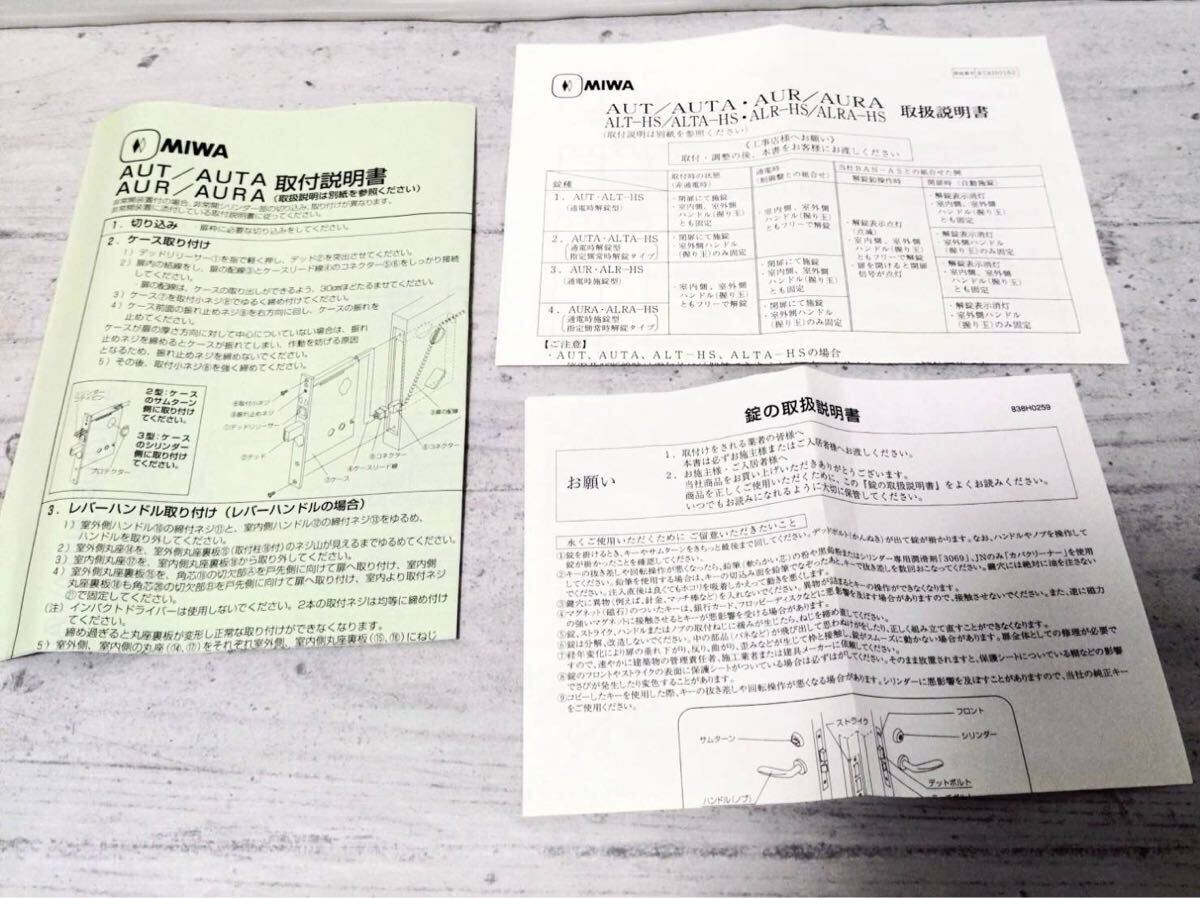 MIWA
AUT／AUTA
AUR／AURA 取付説明書
(取扱説明は別紙を参照ください)
非常開装置に添付している取付説明書に従ってください。
1. 切り込み 扉枠に必要な切り込みをしてください。
2. ケース取り付け
1）デッドリリーサー①を指で軽く押し、デッド②を突出させてください。
2）扉内の結線をし、扉の配線③とケースリード線④のコネクター⑤⑥をしっかり接続
してください。
・扉の配線は、ケースの取り出しができるよう、30cmほどたるませてください。
3）ケース⑦を取付小ネジ⑧でゆるく締め付けてください。
4）ケース前面の振れ止めネジ⑨を右方向に回し、ケースの振れを
止めてください。
ケースが扉の厚さ方向に対して中心についていない場合は、振れ
止めネジを締めるとケースが振れてしまい、作動を妨げる原因
となるため、振れ止めネジを締めないでください。
5）その後、取付小ネジ⑧を強く締めてください。
2型：ケース
のサムターン
側に取り付け
てください。
3型：ケース
のシリンダー
側に取り付け
てください。
プロテクター
⑧取付小ネジ
⑨振れ止めネジ
①デッドリリーサー
②デッド
⑦ケース
④ケースリード線
⑥コネクター
⑤コネクター
③扉の配線
3. レバーハンドル取り付け（レバーハンドルの場合）
1）室外側ハンドル⑩の締付ネジ⑪と、室内側ハンドル⑫の締付ネジ⑬をゆるめ、
ハンドルを取り外してください。
2）室外側丸座⑭を、室外側丸座裏板⑮(取付柱⑯付)のネジ山が見えるまでゆるめてください。
3）室内側丸座⑰を、室内側丸座裏板⑱から取り外してください。
(注) インパクトドライバーは使用しないでください。2本の取付ネジは均等に締め付け
てください。
締め過ぎると丸座裏板が変形し正常な取り付けができなくなります。
MIWA
AUT／AUTA・AUR／AURA
ALT-HS／ALTA-HS・ALR-HS／ALRA-HS 取扱説明書
(取付説明は別紙を参照ください)
《工事店様へお願い》
取付・調整の後、本書をお客様にお渡しください
錠種
取付時の状態
(非通電時)
通電時
(制御盤との組合せ)
当社BAN-ASとの組合せた例
解錠釦操作時
閉扉時（自動施錠）
1. AUT・ALT-HS
(通電時解錠型)
・閉扉にて施錠
・室内側、室外側
ハンドル(握り玉)
とも固定
・室内側、室外側
ハンドル(握り玉)
ともフリーで解錠
・解錠表示点灯
(点滅)
・室内側、室外側
ハンドル(握り玉)
ともフリーで解錠
・扉を開けると開扉
信号が点灯
・解錠表示消灯
・室内側、室外側
ハンドル(握り玉)
とも固定
2. AUTA・ALTA-HS
通電時解錠型
指定側常時解錠タイプ
・閉扉にて施錠
・室外側ハンドル
(握り玉)のみ固定
・解錠表示消灯
・室外側ハンドル
(握り玉)のみ固定
3. AUR・ALR-HS
(通電時施錠型)
・室内側、室外側
ハンドル(握り玉)
ともフリーで解錠
・閉扉にて施錠
・室内側、室外側
ハンドル(握り玉)
とも固定
・解錠表示消灯
・室内側、室外側
ハンドル(握り玉)
とも固定
4. AURA・ALRA-HS
通電時施錠型
指定側常時解錠タイプ
・閉扉にて施錠
・室外側ハンドル
(握り玉)のみ固定
・解錠表示消灯
・室外側ハンドル
(握り玉)のみ固定
【ご注意】
・AUT、AUTA、ALT-HS、ALTA-HSの場合
錠の取扱説明書
838H0259
お願い
1. 取付けをされる業者の皆様へ
本書は必ずお施主様またはご入居者様へお渡しください。
2. お施主様・ご入居者様へ
当社商品をお買い上げいただきありがとうございます。
商品を正しくご使用いただくために、この『錠の取扱説明書』をよくお読みください。
いつでもお読みになれるように大切に保管してください。
永くご使用いただくために ご留意いただきたいこと
①錠を掛けるとき、キーやサムターンをきちっと最後まで回してください。デッドボルト(かんぬき)が出て錠が掛かります。なお、ハンドルやノブを操作して
錠が掛かったことを確認してください。
③鍵穴に異物(例えば、針金、マッチ棒など)を入れないでください。異物が詰まるとキーの操作ができなくなります。
④マグネット(磁石)のついたキーは、銀行カード、フロッピーディスクなどに悪影響を及ぼす場合がありますので、接触させないでください。また、逆に磁力
の強いマグネットに接触させるとキーが悪影響を受ける場合があります。
⑤錠、ストライク、ハンドルまたはノブの取付ねじに緩みが生じたら、ねじを締め直してください。
⑥錠は分解、改造しないでください。中の部品(バネなど)が飛び出して思わぬけがをしたり、正しく組み立て直すことができなくなります。
⑦経年変化により扉の垂れ下がり、反り、曲がり、歪みなどが生じて枠と接触し、錠がスムーズに動かない場合があります。扉全体としての修理が必要で
すので、速やかに建築物の管理責任者、施工業者または建具メーカーに依頼してください。
⑧錠のフロントやストライクの表面に保護シートがついている場合は必ずはがしてください。そのまま放置されますと、保護シートについている糊などの影響
でさびが発生したり変色することがあります。
⑨コピーしたキーを使用した際、キーの抜き差しや回転操作が悪くなる場合があります。シリンダーに悪影響を及ぼすことがありますので、当社の純正キー
をご使用ください。
サムターン
ストライク
フロント
シリンダー
デットボルト
ハンドル(ノブ)